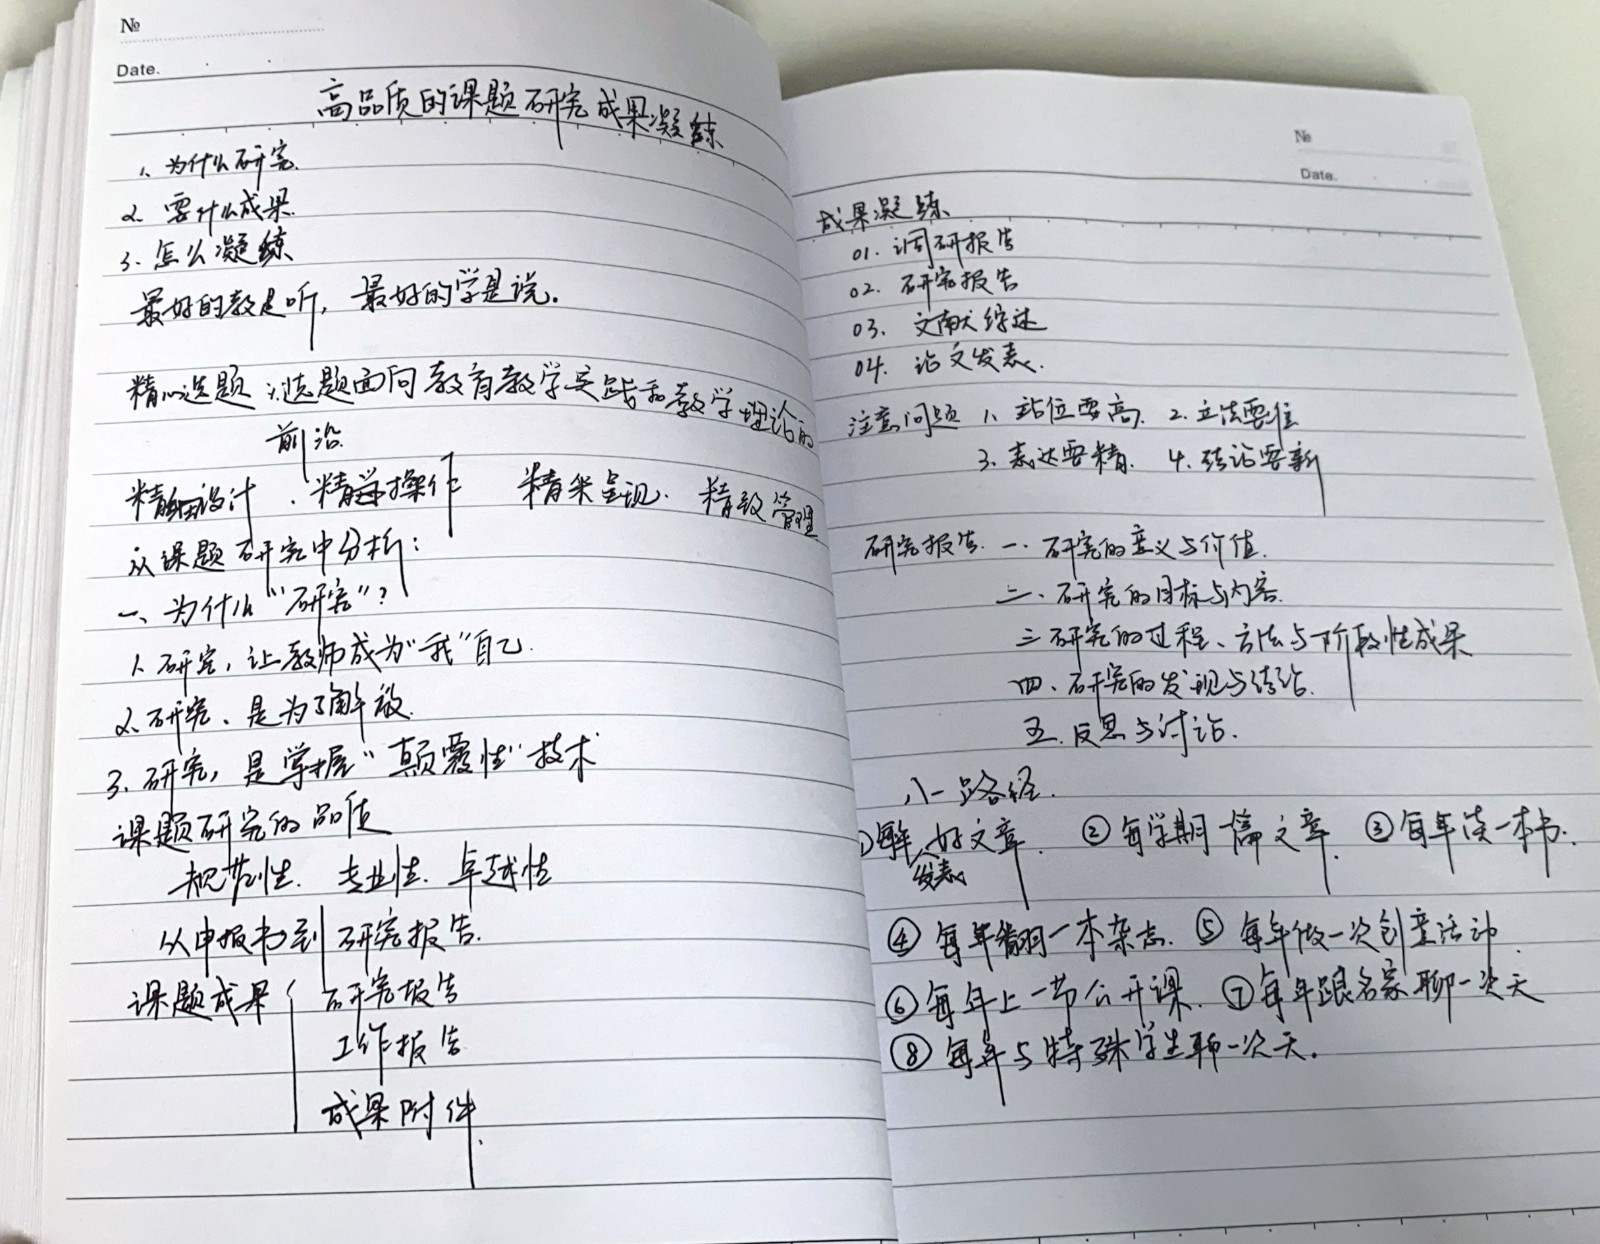 №
Date.
高品质的课题研究成果凝练
1、为什么研究
2. 要什么成果
3. 怎么凝练
最好的教是听，最好的学是说。
精心选题：选题面向教育教学实践和教学理论的
前沿
精细设计．精准操作 精采呈现．精致管理
从课题研究中分析：
一、为什么“研究”？
1. 研究，让教师成为“我”自己．
2. 研究、是为了解放
3. 研究，是掌握“颠覆性”技术
课题研究的品质
规范性．专业性．卓越性
从申报书到研究报告．
课题成果 研究报告
工作报告
成果附件．
№
Date.
成果凝练
01. 调研报告
02. 研究报告
03. 文献综述
04. 论文发表．
注意问题 1、站位要高． 2. 立法要准
3. 表达要精． 4. 结论要新
研究报告．一．研究的意义与价值．
二、研究的目标与内容
三 研究的过程、方法与阶段性成果
四、研究的发现与结论．
五．反思与讨论．
八一路径．
①每年发表好文章． ②每学期一篇文章． ③每年读一本书．
④ 每年翻一本杂志．⑤ 每年做一次创意活动．
⑥ 每年上一节公开课．⑦ 每年跟名家聊一次天
⑧ 每年与特殊学生聊一次天．